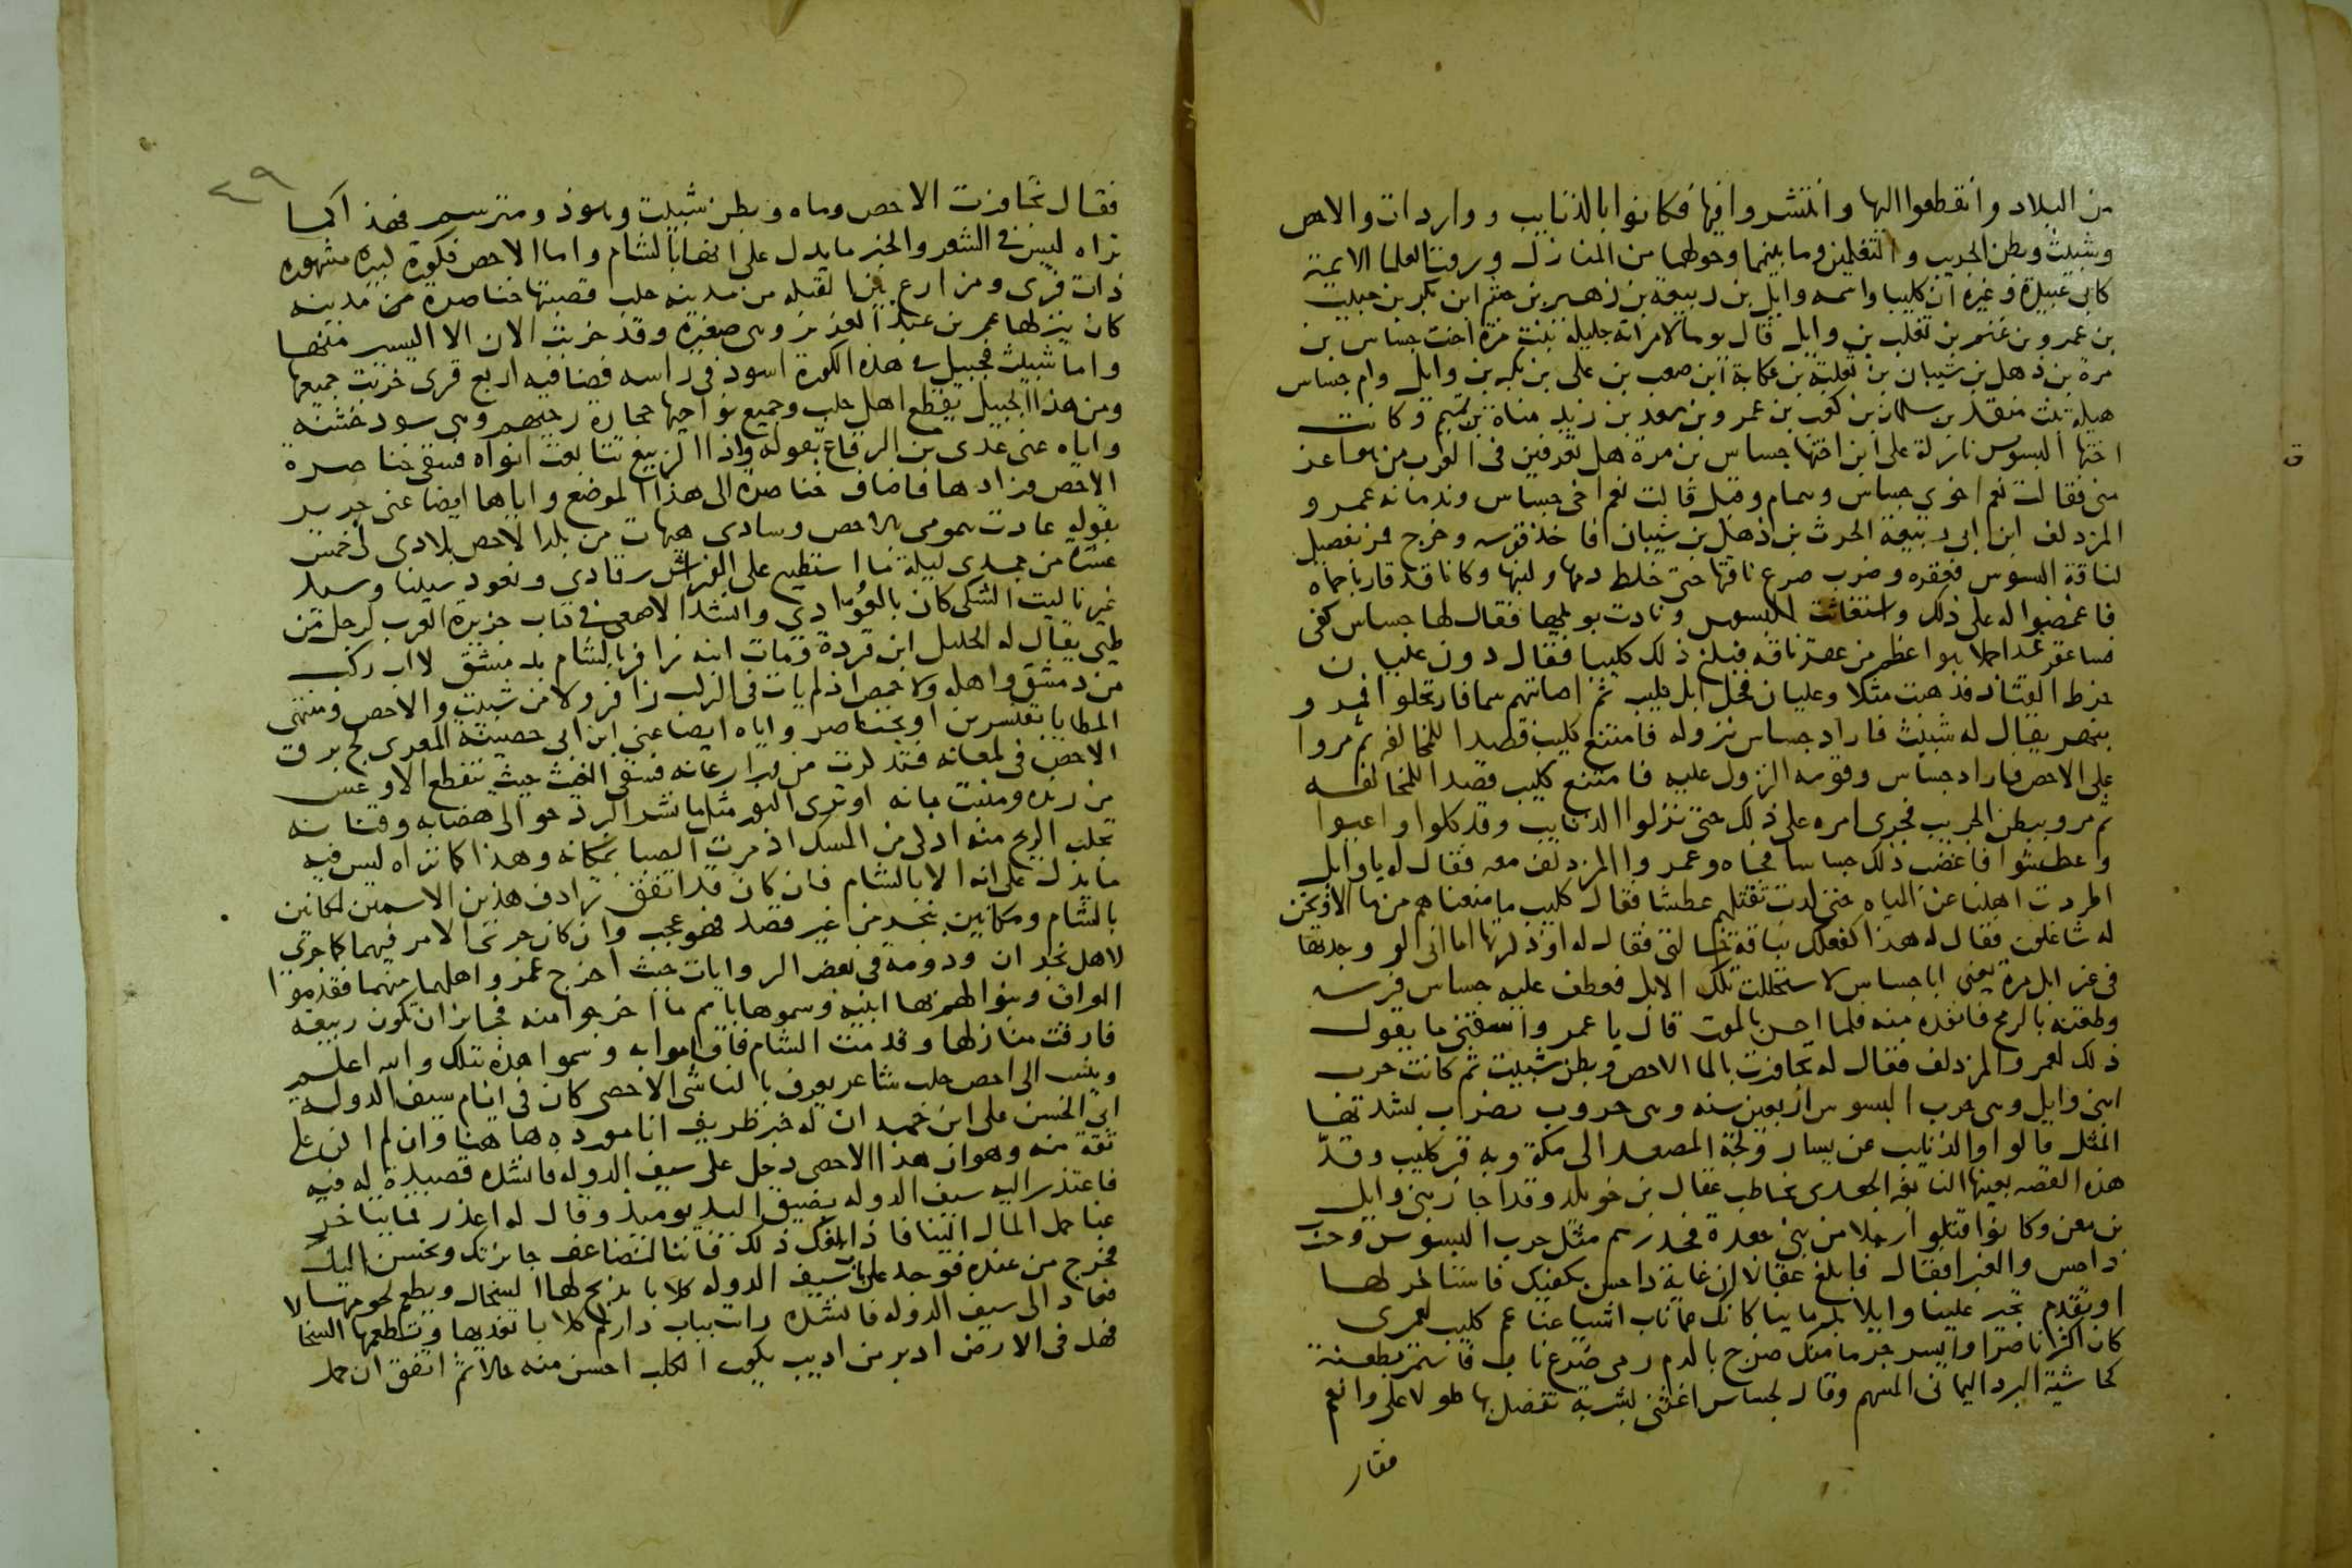 من البلاد وانقطعوا اليها وانتشروا فيها فكانوا بالذنايب وواردات والاحص
وشبيث وبطن الجريب والتغلمين وما بينهما وحولها من المنازل وروت العلما الايمة
كابى عبيدة وغيره ان كليبا واسمه وايل بن ربيعة بن زهير بن جشم ابن بكر بن حبيب
بن عمرو بن غنم بن تغلب بن وايل قال يوما لامراته جليله بنت مرة اخت جساس بن
مرة بن ذهل بن شيبان بن ثعلبة بن عكابة ابن صعب بن على بن بكر بن وايل وام جساس
هيلة بنت منقذ بن سلمان بن كعب بن عمرو بن سعد بن زيد مناة بن تميم وكانت
اختها البسوس نازلة على ابن اختها جساس بن مرة هل تعرفين فى العرب من هو اعز
منى فقالت نعم اخوي جساس وهمام وقيل قالت نعم اخى جساس وندمانه عمرو
المزدلف ابن ابى ربيعة الحرث بن ذهل بن شيبان فاخذ قوسه وخرج فمر بفصيل
لناقة البسوس فعقره وضرب ضرع ناقتها حتى خلط دمها ولبنها وكانا قد قاربا حماه
فاغمضوا له على ذلك واستغاثت البسوس ونادت بويلها فقال لها جساس كفى
فساعقر غدا جملا هو اعظم من عقر ناقه فبلغ ذلك كليبا فقال دون عليان
خرط القتاد فذهبت مثلا وعليان فحل ابل كليب ثم اصابتهم سما فارتحلوا فمروا
بنهر يقال له شبيث فاراد جساس نزوله فامتنع كليب قصدا للمخالفه ثم مروا
على الاحص فاراد جساس وقومه النزول عليه فامتنع كليب قصدا للمخالفه
ثم مروا ببطن الجريب فجرى امره على ذلك حتى نزلوا الذنايب وقد كلوا واعيوا
وعطشوا فاغضب ذلك جساسا فجاه وعمرو المزدلف معه فقال له يا وايل
اطردت اهلنا عن المياه حتى كدت تقتلهم عطشا فقال كليب ما منعناهم من ما الا ونحن
له شاغلون فقال له هذا كفعلك بناقة خالتى فقال له اوذكرتها اما انى لو وجدتها
فى غير ابل مرة يعنى ابا جساس لاستحللت تلك الابل فعطف عليه جساس فرسه
وطعنه بالرمح فانفذه منه فلما احس بالموت قال يا عمرو اسقنى ما يقول
ذلك لعمرو المزدلف فقال له تجاوزت بالما الاحص وبطن شبيث ثم كانت حرب
ابنى وايل وهى حرب البسوس اربعين سنه وهى حروب يضرب بشدتها
المثل قالوا والذنايب عن يسار ولجة المصعد الى مكة وبه قبر كليب وقد
هذه القصه بعينها النابغه الجعدى يخاطب عقال بن خويلد وقد اجار بنى وايل
بن معن وكانوا قتلوا رجلا من بنى جعدة فحذرهم مثل حرب البسوس وحرب
داحس والغبرا فقال فابلغ عقالا ان غاية داحس بكفيك فاستاخر لها
او تقدم تجير علينا وايلا بدماينا كانك عما ناب اشياعنا عم كليب لعمرى
كان اكثر ناصرا وايسر جرما منك ضرج بالدم رمى ضرع ناب فاستمر بطعنة
كحاشية البرد اليمانى المسهم وقال لجساس اغثنى بشربة تفضل بها طولا على وانعم
فقال
٤٩
فقال تجاوزت الاحص وماه وبطن شبيث وهو ذو مترسم فهذا كما
تراه ليس فى الشعر والخبر ما يدل على انها بالشام واما الاحص فكورة كبيره مشهوره
ذات قرى ومزارع بين القبله من مدينة حلب قصبتها خناصرة من مدينه
كان ينزلها عمر بن عبد العزيز وهى صغيرة وقد خربت الان الا اليسير منها
واما شبيث فجبيل فى هذه الكورة اسود فى راسه فضا فيه اربع قرى خربت جميعها
ومن هذا الجبيل يقطع اهل حلب وجميع نواحيها حجارة رحيهم وهى سود خشنه
واياه عنى عدى بن الرقاع بقوله واذا الربيع تتابعت انواه فسقى خناصرة
الاحص وزادها فاضاف خناصرة الى هذا الموضع واياها ايضا عنى جرير
بقوله عادت همومى بالاحص وسادى هيهات من بلد الاحص بلادى لى خمس
عشرة من جمادى ليلة ما استطيع على الفراش رقادى ونعود سيدنا وسيد
غيرنا ليت التشكى كان بالعوادى وانشد الاصمعى فى كتاب جزيرة العرب لرجل من
طيى يقال له الخليل ابن قردة ومات ابنه زافر بالشام بدمشق لا اب ركب
من دمشق واهله ولا حمص اذ لم يات فى الركب زافر ولا من شبيث والاحص ومنتهى
المطايا بقنسرين او بخناصر واياه ايضا عنى ابن ابى حصينة المعرى لج برق
الاحص فى لمعانه فتذكرت من ورا رعانه فسقى الغيث حيث ينقطع الاوعس
من رنده ومنبت بانه او ترى النور مثل ما نشر البرد حوالى هضابه وقنانه
تجلب الريح منه اذكى من المسك اذ مرت الصبا بمكانه وهذا كما تراه ليس فيه
ما يدل على انه الا بالشام فان كان قد اتفق ترادف هذين الاسمين لمكانين
بالشام ومكانين بنجد من غير قصد فهو عجب وان كان جرى الامر فيهما كما جرى
لاهل نجران ودومة فى بعض الروايات حيث اخرج عمر واهلها منهما فقدموا
العراق وبنوا لهم بها ابنيه وسموها باسم ما اخرجوا منه فجايز ان تكون ربيعه
فارقت منازلها وقدمت الشام فاقاموا به وسموا هذه بتلك والله اعلم
وينسب الى احص حلب شاعر يعرف بالناشى الاحصى كان فى ايام سيف الدولة
ابى الحسن على ابن حمدان له خبر ظريف انا مورده هاهنا وان لم اكن على
ثقة منه وهو ان هذا الاحصى دخل على سيف الدوله فانشده قصيدة له فيه
فاعتذر اليه سيف الدوله بضيق اليد يوميذ وقال له اعذر فما يتاخر
عنا حمل المال الينا فاذا بلغك ذلك فاتنا لنضاعف جايزتك ونحسن اليك
فخرج من عنده فوجد على باب سيف الدوله كلابا يذبح لها السخال ويطعم لحومها
فعاد الى سيف الدوله فانشده رايت بباب داركم كلابا تغذيها وتطعمها السخالا
فهل فى الارض ادبر من اديب يكون الكلب احسن منه حالا ثم اتفق ان حمل